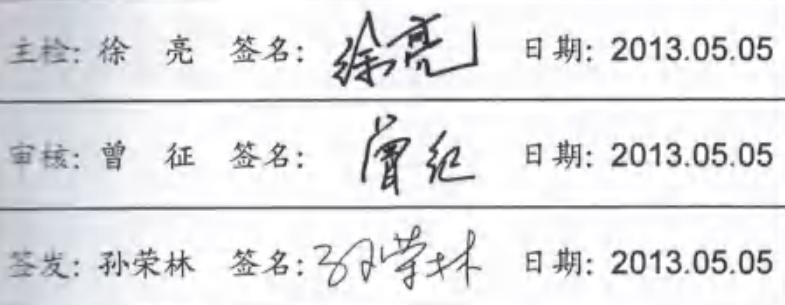 主检: 徐 亮 签名: 徐亮 日期: 2013.05.05
审核: 曾 征 签名: 曾征 日期: 2013.05.05
签发: 孙荣林 签名: 孙荣林 日期: 2013.05.05